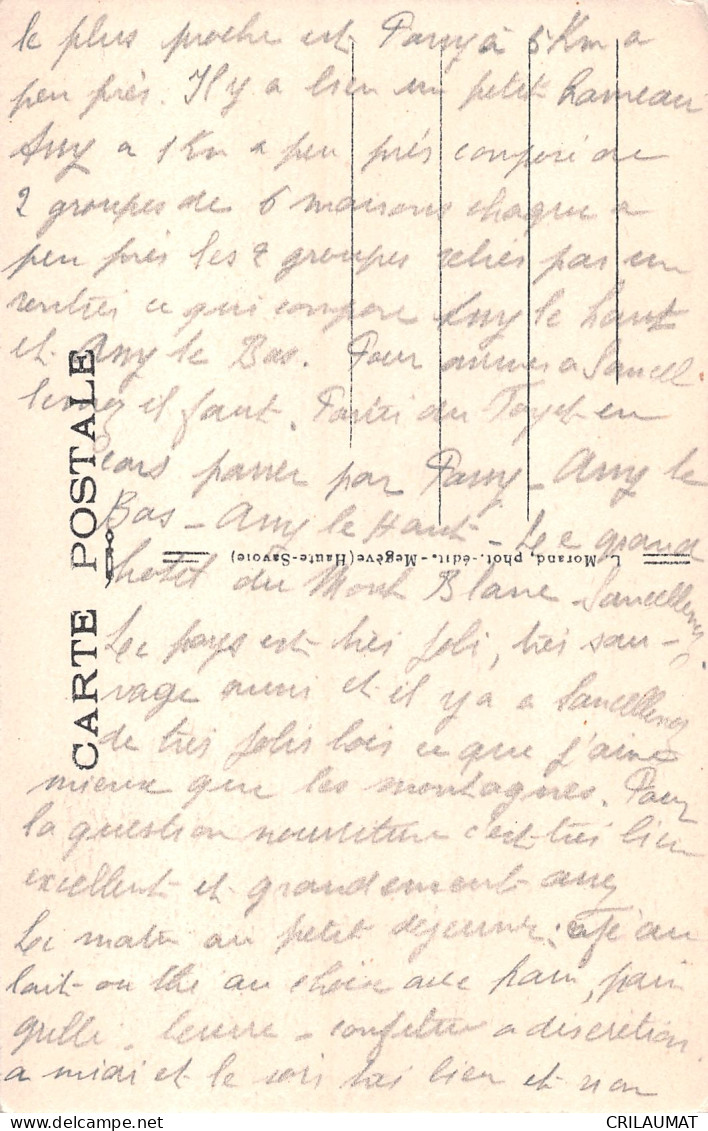 le plus proche est Passy à 5 Km a
peu près. Il y a bien un petit hameau
Assy a 1 Km a peu près composé de
2 groupes de 6 maisons chaque a
peu près les 2 groupes reliés pas un
sentier ce qui compose Assy le haut
et Assy le Bas. Pour arriver a Sancel
lemoz il faut. Partir du Fayet en
cars passer par Passy - Assy le
Bas - Assy le Haut - Le grand
hotel du Mont Blanc - Sancellemoz
Le pays est très joli, très sau-
vage aussi et il y a a Sancellemoz
de très jolis bois ce que j'aime
mieux que les montagnes. Pour
la question nourriture c'est très bien
excellent et grandement assez
Le matin au petit dejeuner: café au
lait ou thé au choix avec pain, pain
grillé - beurre - confiture a discretion.
a midi et le soir très bien et non
CARTE POSTALE
L. Morand, phot.-édit. - Megève (Haute-Savoie)
CRILAUMAT